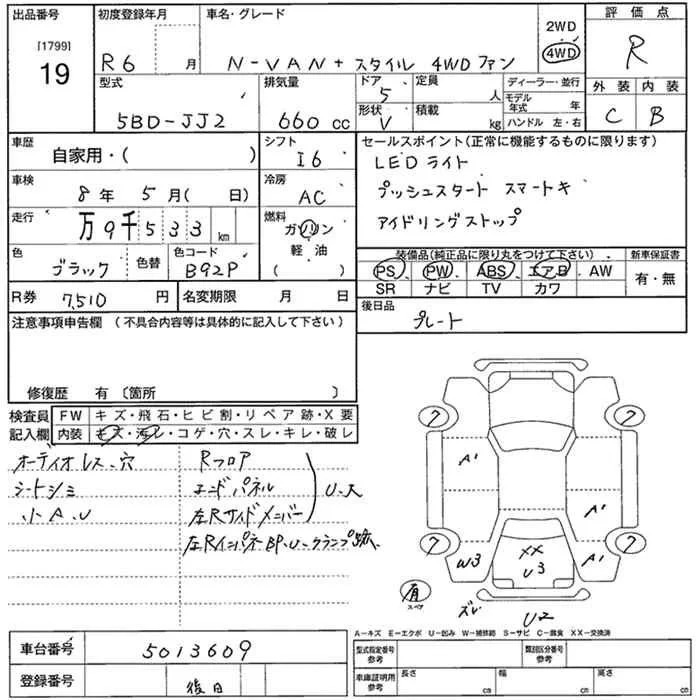 出品番号 初度登録年月 車名・グレード 2WD 評価点
[1799]
19 R6 月 N-VAN + スタイル 4WD ファン 4WD R
型式 排気量 ドア 定員 ディーラー・並行 外装 内装
5BD-JJ2 660 cc 5 人 モデル年式 年 C B
形状 積載
V kg ハンドル 左・右
車歴 シフト セールスポイント(正常に機能するものに限ります)
自家用・( ) I6 LEDライト
車検 冷房
8年 5月( 日) AC プッシュスタート スマートキ
走行 燃料
万9千533 km ガソリン アイドリングストップ
色 色替 色コード 軽油 装備品(純正品に限り丸をつけて下さい) 新車保証書
ブラック B92P ( ) PS PW ABS エアB AW 有・無
SR ナビ TV カワ
R券 7,510 円 名変期限 月 日 後日品
プレート
注意事項申告欄 (不具合内容等は具体的に記入して下さい)
修復歴 有〔箇所 〕
検査員 FW キズ・飛石・ヒビ割・リペア跡・X要
記入欄 内装 キズ・汚レ・コゲ・穴・スレ・キレ・破レ
オーディオレス、穴 Rフロア
シートシミ エンドパネル U、大
小A、U 左Rサイドメンバー
左RインパネBP、U、クランプ跡、
ワ ワ
A' A'
ワ ワ
W3 XX U3 A'
有 スペア ズレ U2
A-キズ E-エクボ U-凹み W-補修跡 S-サビ C-腐食 XX-交換済
車台番号 5013609 型式指定番号 参考 類別区分番号 参考
登録番号 後日 車庫証明用 参考 長さ cm 幅 cm 高さ cm